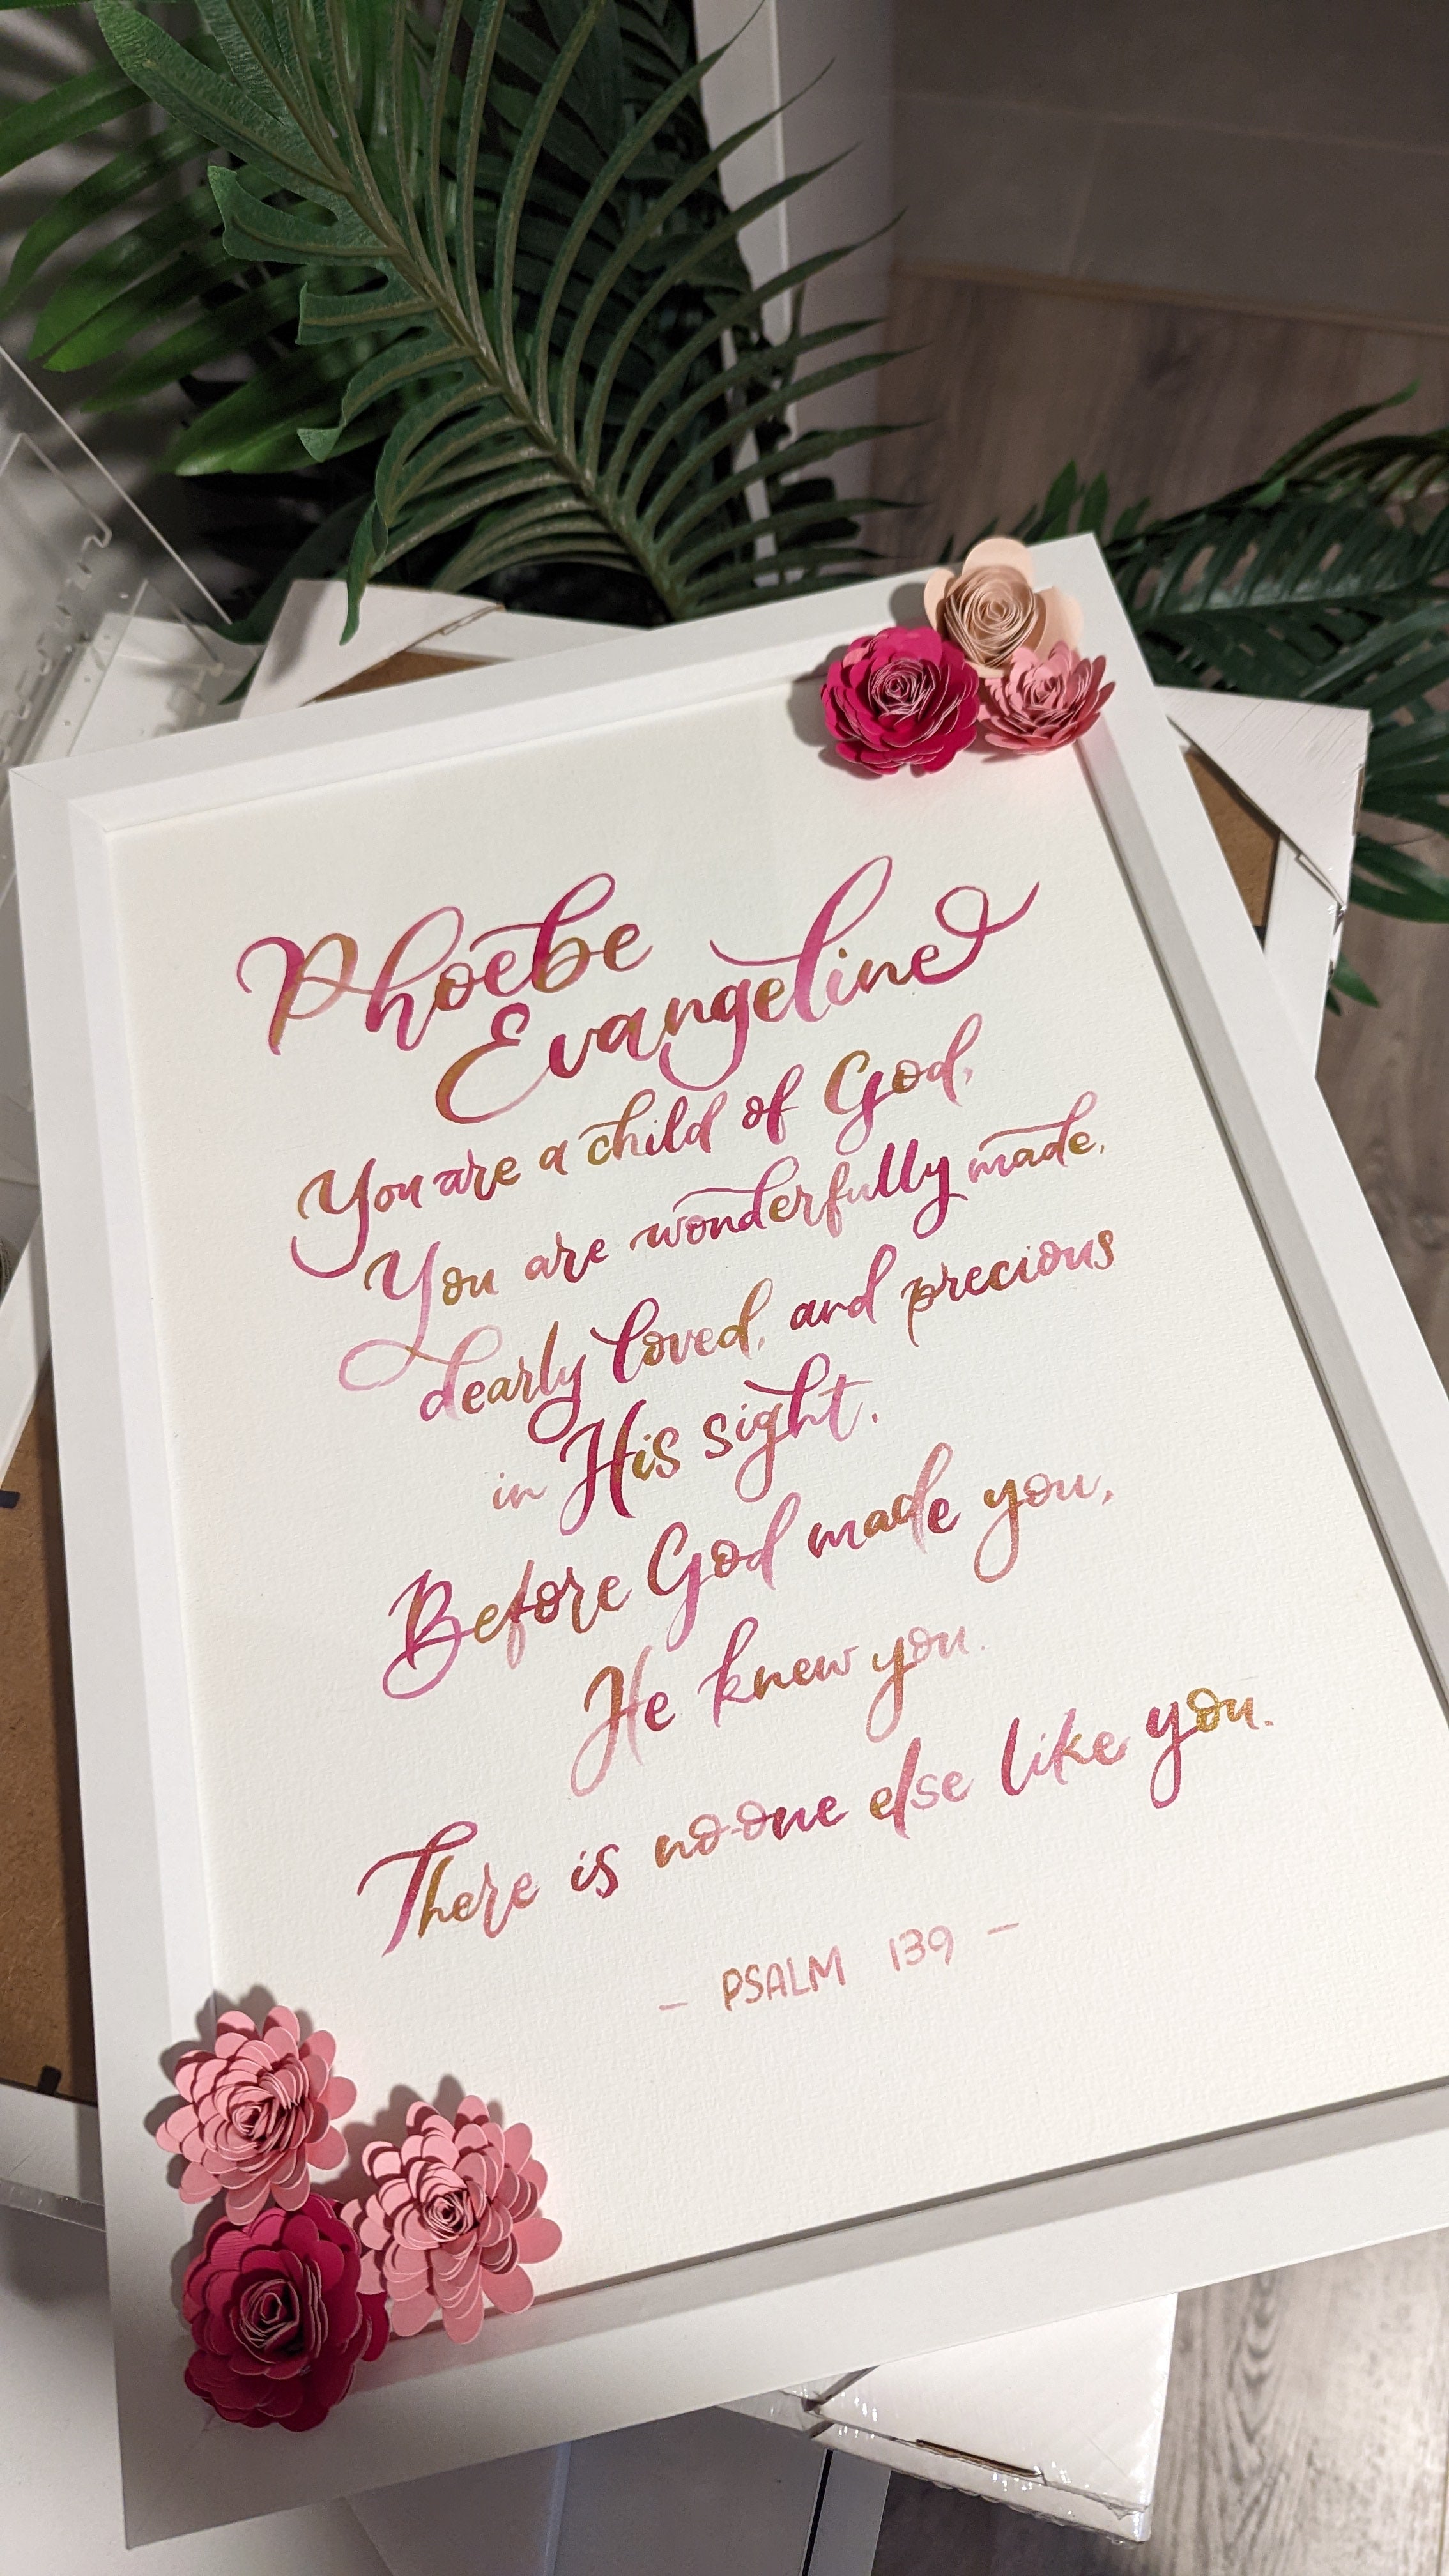 Phoebe
Evangeline
You are a child of God,
You are wonderfully made,
dearly loved, and precious
in His sight.
Before God made you,
He knew you.
There is no-one else like you.
- PSALM 139 -